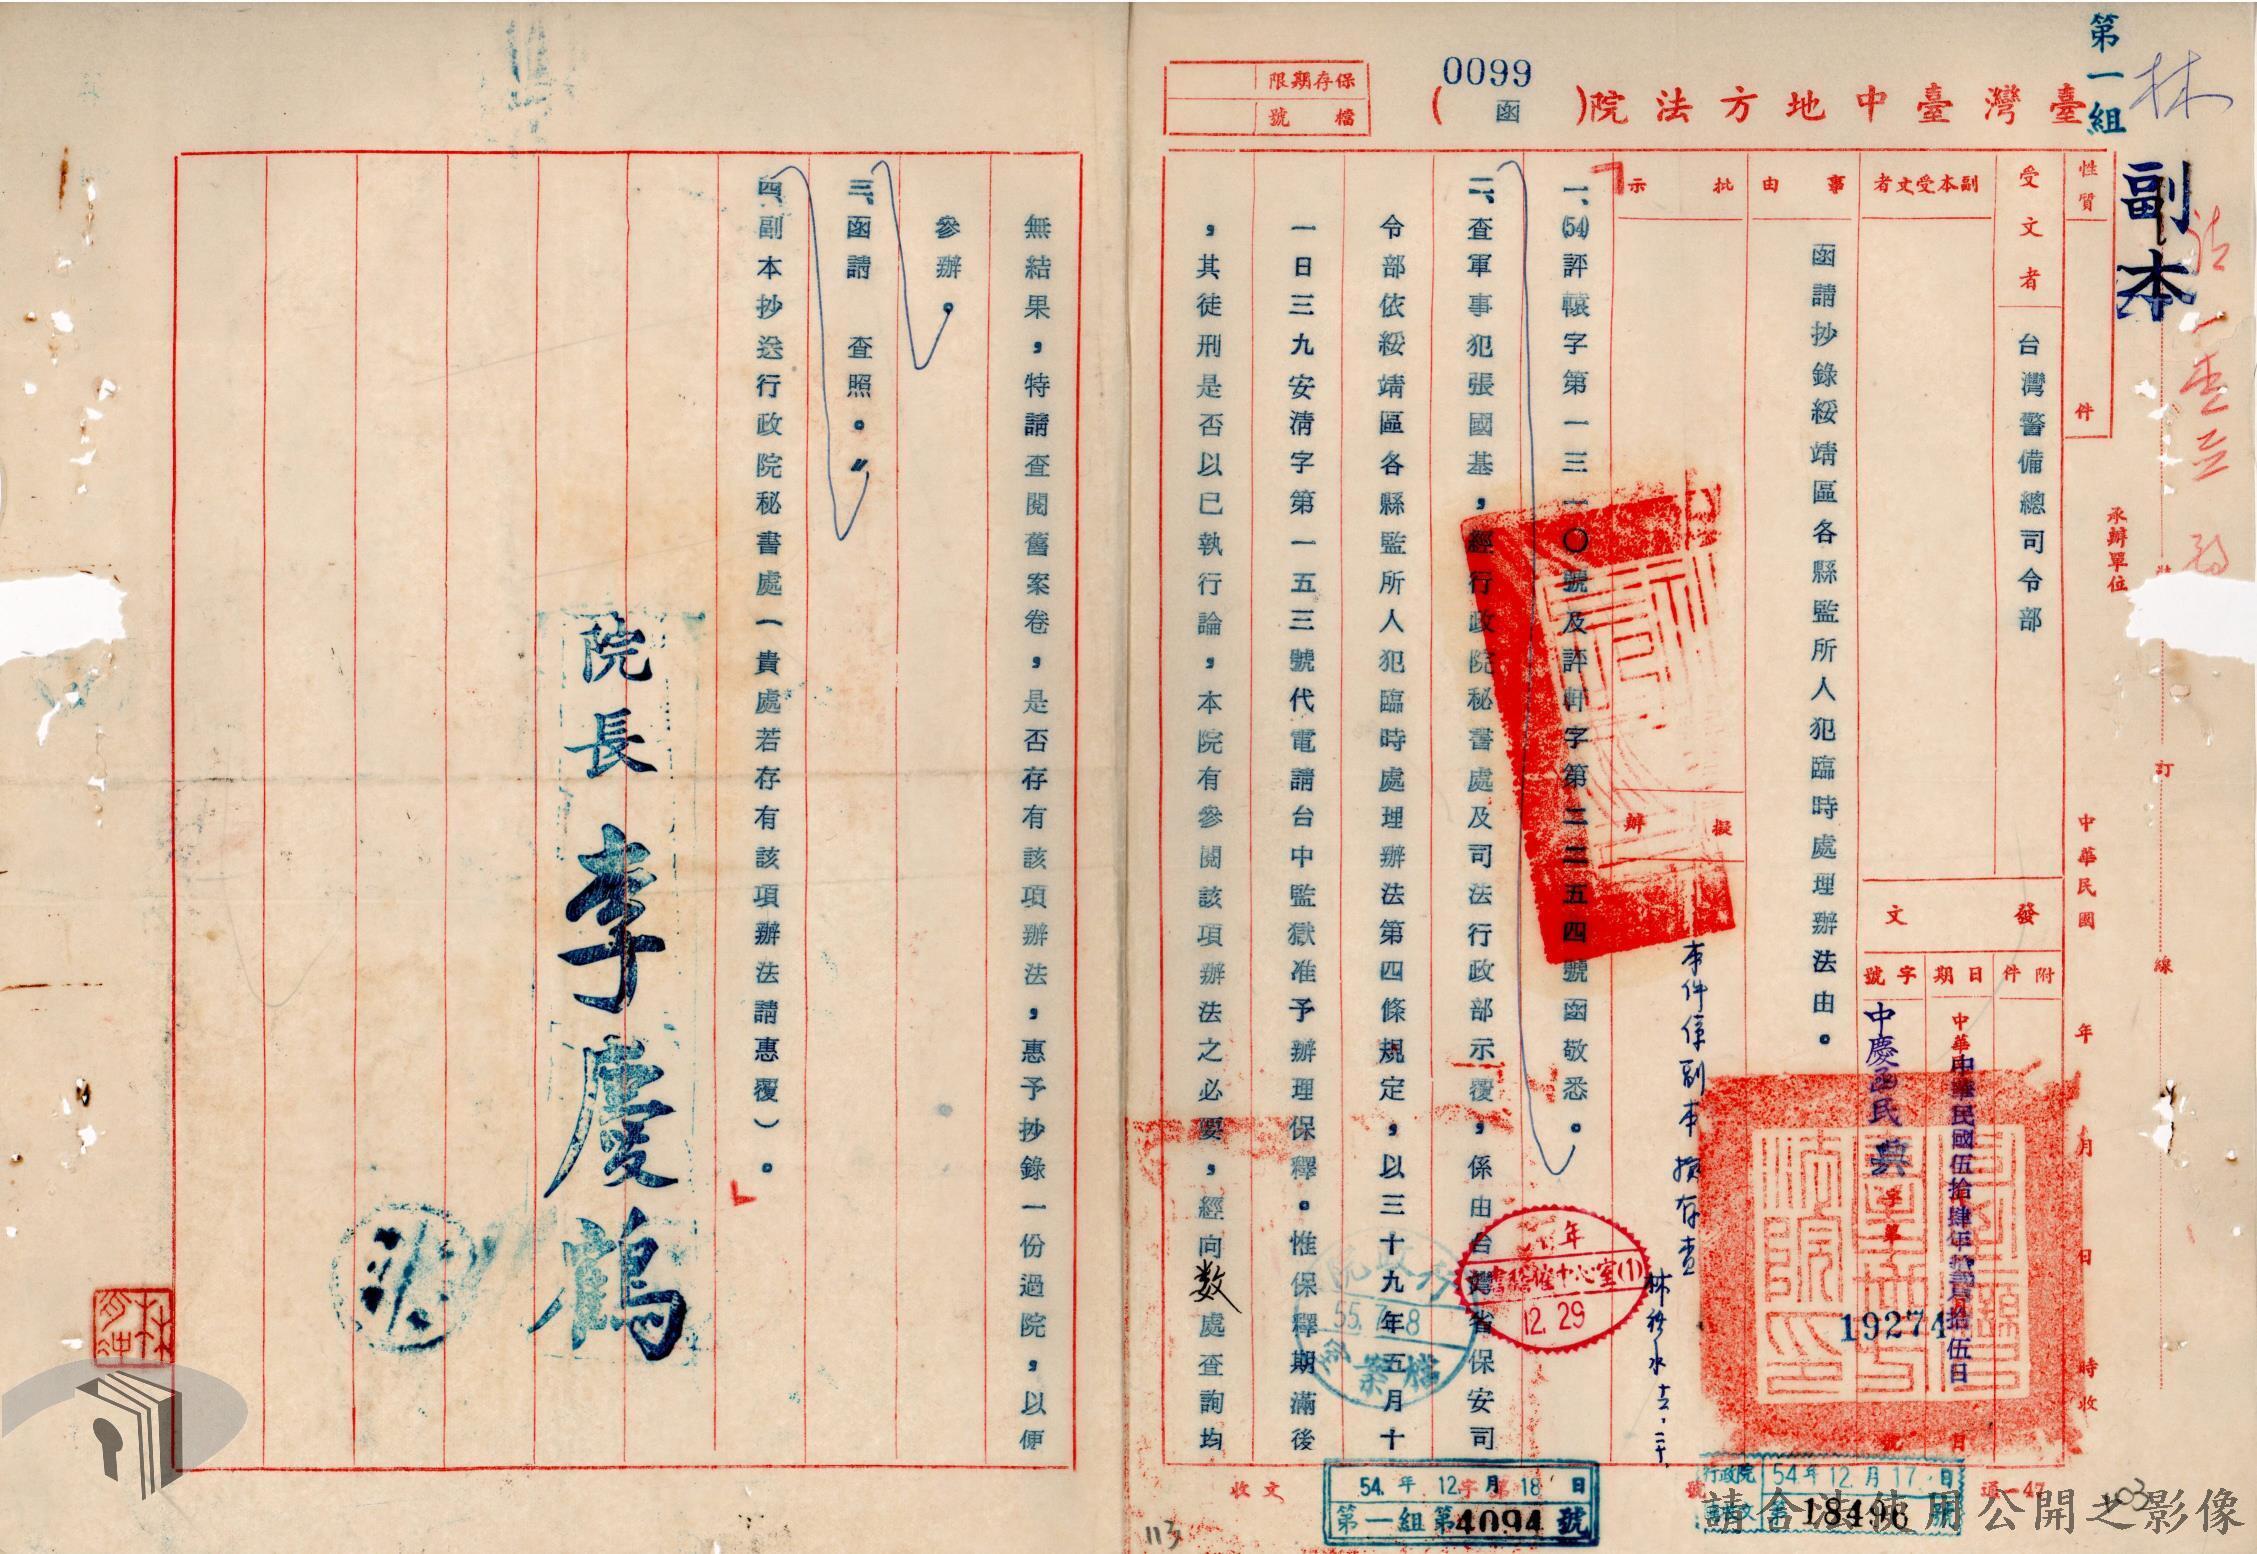 第一組
林
副本
0099
臺灣臺中地方法院(函)
保存期限
檔號
性質
件
受文者
台灣警備總司令部
副本受文者
事由
函請抄錄綏靖區各縣監所人犯臨時處理辦法由。
批示
擬辦
發文
附件
日期
字號
中華民國伍拾肆年拾貳月拾伍日
中慶函民典字第
19274
號
承辦單位
中華民國 年 月 日 時收
裝
訂
線
本件係副本擬存查
一、(54)評轅字第一三一〇號及評軒字第三二五四號函敬悉。
二、查軍事犯張國基,經行政院秘書處及司法行政部示覆,係由台灣省保安司
令部依綏靖區各縣監所人犯臨時處理辦法第四條規定,以三十九年五月十
一日三九安清字第一五三號代電請台中監獄准予辦理保釋。惟保釋期滿後
,其徒刑是否以已執行論,本院有參閱該項辦法之必要,經向数處查詢均
無結果,特請查閱舊案卷,是否存有該項辦法,惠予抄錄一份過院,以便
參辦。
三、函請 查照。〃
四、副本抄送行政院秘書處(貴處若存有該項辦法請惠覆)。
院長 李慶鶴
年
12. 29
行政院
55. 7. 8
檔案
收文 字第 號
54. 年 12 月 18 日
第一組第4094號
行政院
54年12月17日
第18496號
通—47
113
103
請合法使用公開之影像